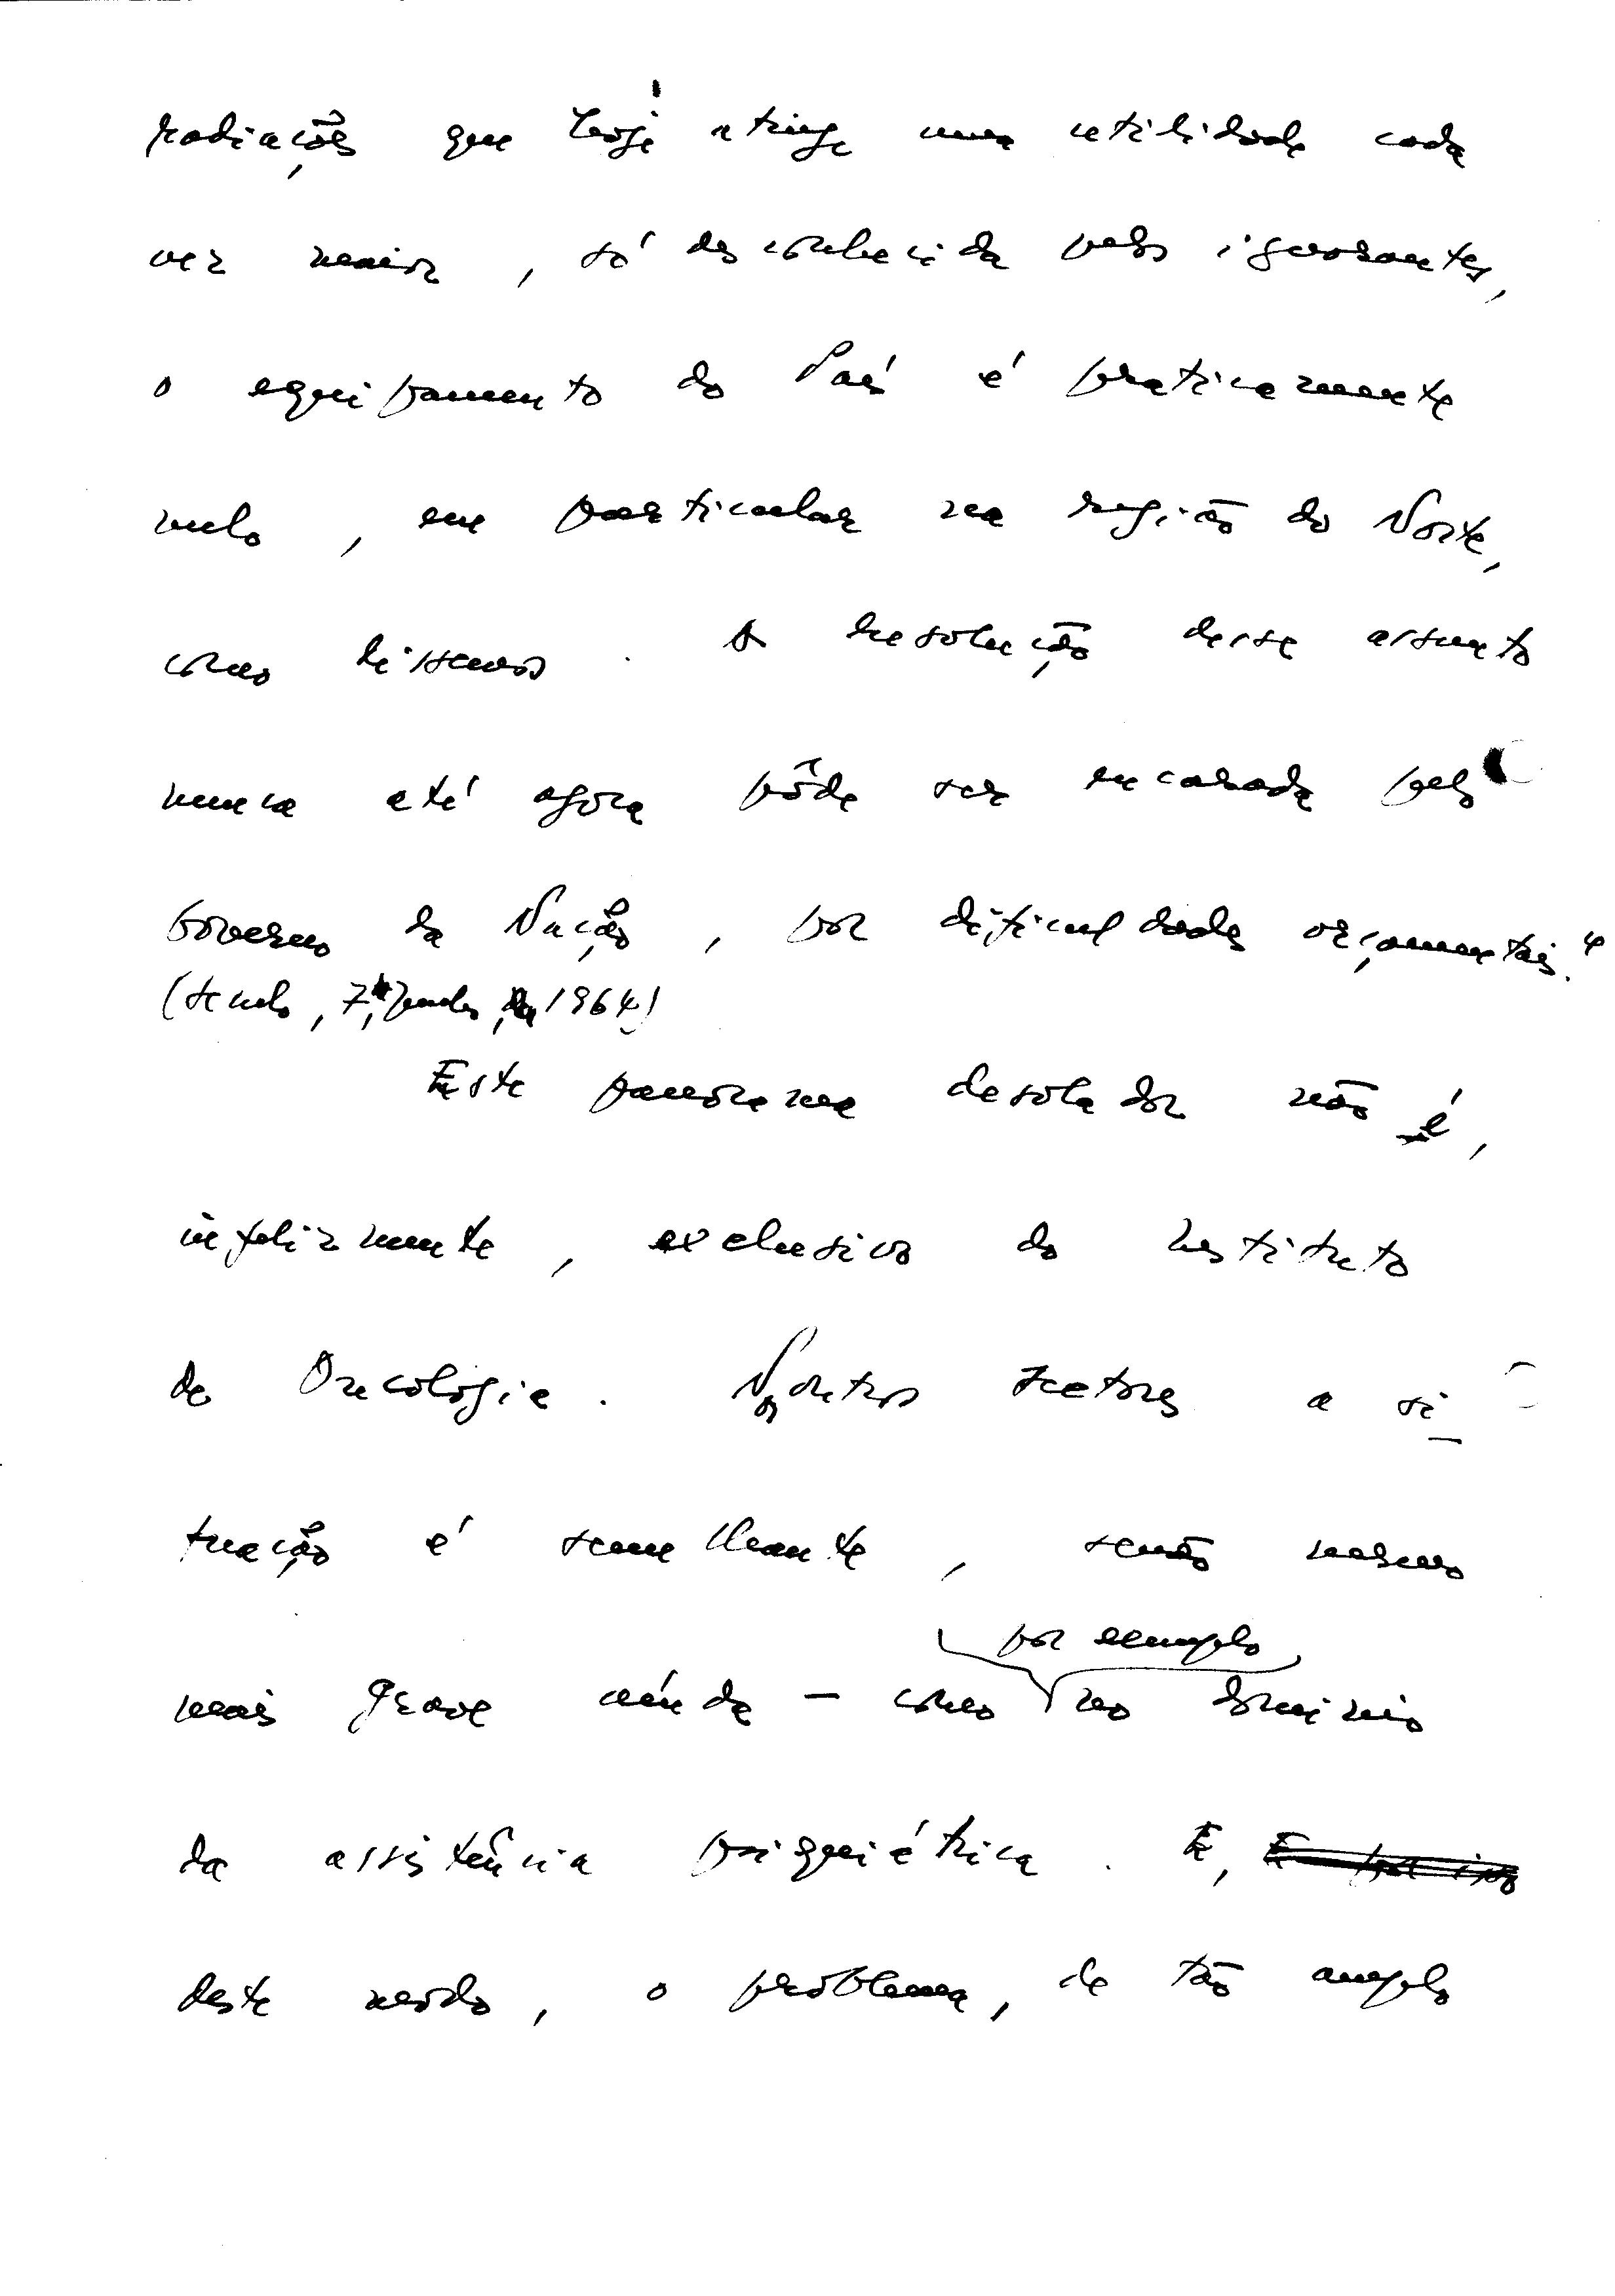 radiações que hoje atinge uma utilidade cada
vez maior, só desconhecida pelos ignorantes,
o equipamento do País é praticamente
nulo, em particular na região do Norte,
como dissemos. A resolução desse assunto
nunca até agora pôde ser encarada pelo
Governo da Nação, por dificuldades orçamentais."
(Século, 7, Janeiro, 1964)
Este panorama desolador não é,
infelizmente, exclusivo do Instituto
de Oncologia. Noutros sectores a si-
tuação é semelhante, senão mesmo
por exemplo
mais grave ainda — como no domínio
da assistência psiquiátrica. E,
deste modo, o problema, de tão amplo